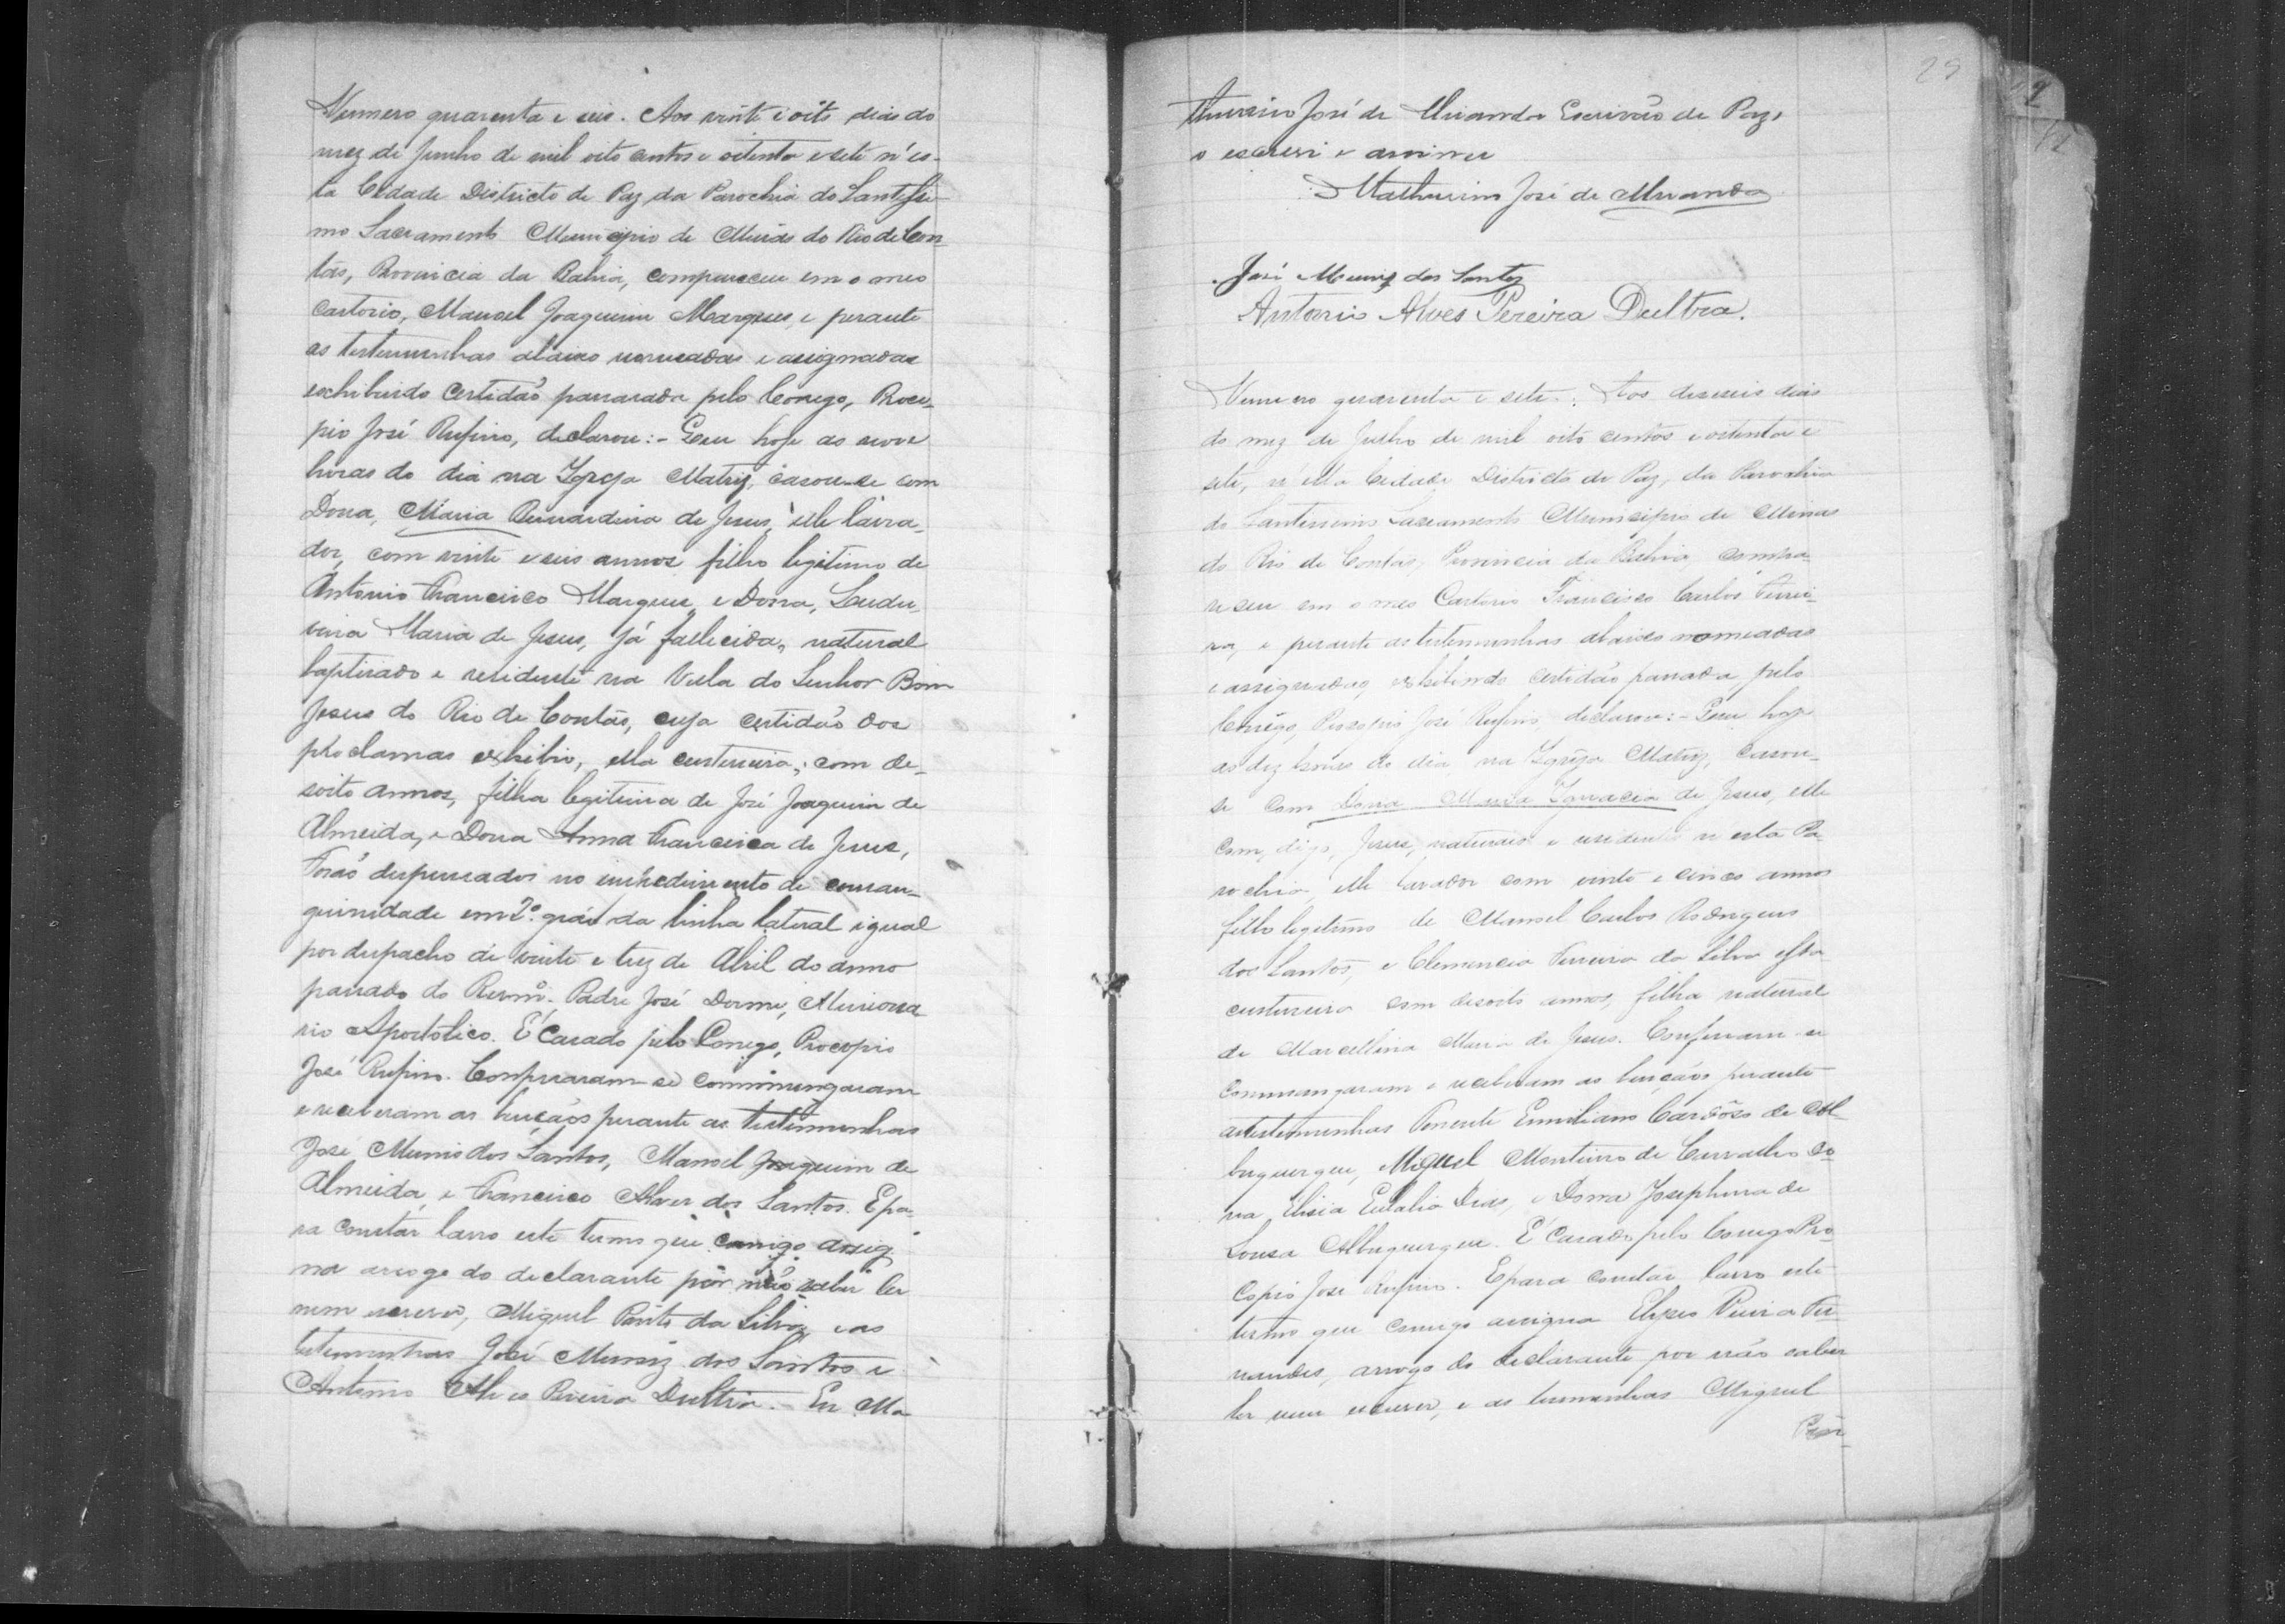 Numero quarenta e seis. Aos vinte e oito dias do
mez de Junho de mil oito centos e oitenta e sete n'es-
ta Cidade Districto de Paz da Parochia do Santissi-
mo Sacramento Municipio de Minas do Rio de Con-
tas, Provincia da Bahia, compareceu em o meo
Cartorio, Manoel Joaquim Marques, e perante
as testemunhas abaixo nomeadas e assignadas
exhibindo certidão passada pelo Conego, Proco-
pio José Rufino, declarou:- Que hoje as nove
horas do dia na Igreja Matriz, casou-se com
Dona, Maria Bernardina de Jesus, elle lavra-
dor, com vinte e seis annos filho legitimo de
Antonio Francisco Marques, e Dona, Ludu-
vina Maria de Jesus, já fallecida, natural
baptisado e residente na Villa do Senhor Bom
Jesus do Rio de Contas, cuja certidão dos
proclamas exhibio, ella custureira, com de-
soito annos, filha legitima de José Joaquim de
Almeida, e Dona Anna Francisca de Jesus,
Forão despensados no impedimento de consan-
guinidade em 2º. gráo da linha lateral igual
por despacho de vinte e trez de Abril do anno
passado do Revmº. Padre José Dorme, Missiona
rio Apostolico. E' Casado pelo Conego, Procopio
José Rufino. Confessaram-se commungaram
e receberam as bençãos perante as testemunhas
José Munis dos Santos, Manoel Joaquim de
Almeida, e Francisco Alves dos Santos. E pa-
ra constár lavro este termo que comigo assig-
na arrogo do declarante por não saber ler
nem escrever, Miguel Pinto da Silva, e as
testemunhas José Muniz dos Santos e
Antonio Alves Pereira Dultra. Eu Ma
29
thurino José de Miranda Escrivão de Paz,
o escrevi e assino
Mathurino José de Miranda
José Muniz dos Santos
Antonio Alves Pereira Dultra.
Numero quarenta e sete. Aos deseseis dias
do mez de Julho de mil oito centos e oitenta e
sete, n'esta Cidade Districto de Paz, da Parochia
do Santissimo Sacramento Municipio de Minas
do Rio de Contas, Provincia da Bahia compa-
receu em o meo Cartorio Francisco Carlos Ferrei-
ra, e perante as testemunhas abaixo nomeadas
e assignadas, exhibindo certidão passada pelo
Conego, Procopio José Rufino, declarou:- Que hoje
as dez horas do dia na Igreja Matriz, casou-
se com Dona Maria Ignacia de Jesus, elle
com, digo, Jesus, naturaes e residentes n'esta Pa-
rochia, elle lavrador com vinte e cinco annos
filho legitimo de Manoel Carlos Rodrigues
dos Santos, e Clemencia Ferreira da Silva, ella
custureira com desoito annos, filha natural
de Marcellina Maria de Jesus. Confessaram-se
Commungaram e receberam as bençãos perante
as testemunhas Tenente Emiliano Cardôso de Al-
buquerque, Miguel Monteiro de Carvalho Do
na Elisia Eulalia Dias, e Dona Josephina de
Sousa Albuquerque. E' Casado pelo Conego Pro-
copio José Rufino. E para constár lavro este
termo que comigo assigna Elyseo Vieira Fer-
nandes, arrogo do declarante por não saber
ler nem escrever, e as temunhas Miguel